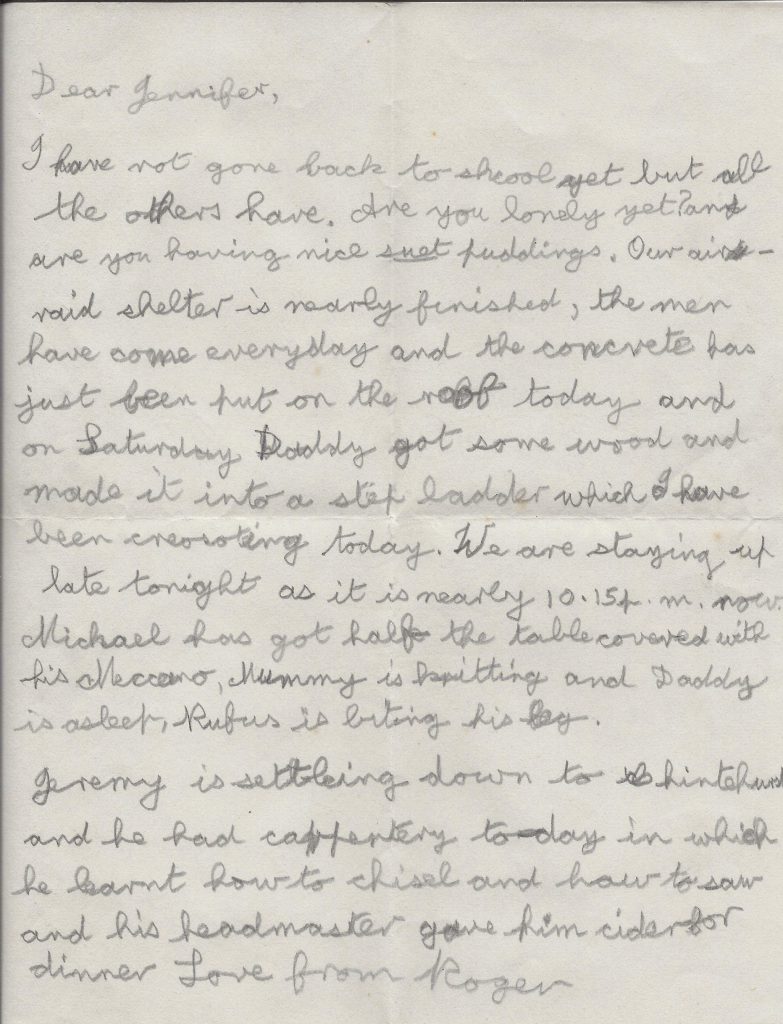 Dear Jennifer,
I have not gone back to shcool yet but all
the others have. Are you lonely yet? and
are you having nice suet puddings. Our air-
raid shelter is nearly finished, the men
have come everyday and the concrete has
just been put on the roof today and
on Saturday Daddy got some wood and
made it into a step ladder which I have
been creosoteing today. We are staying up
late tonight as it is nearly 10.15p.m. now
Michael has got half the table covered with
his Meccano, Mummy is knitting and Daddy
is asleep, Rufus is biting his leg.
Jeremy is settleing down to
and he had carpentery to-day in which
he learnt how to chisel and how to saw
and his headmaster gave him cider for
dinner Love from Roger